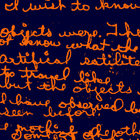 I wish to know
objects were. I
or know what I
artificial satellite
to travel like
But the objects
I have observed
seen before,
of the